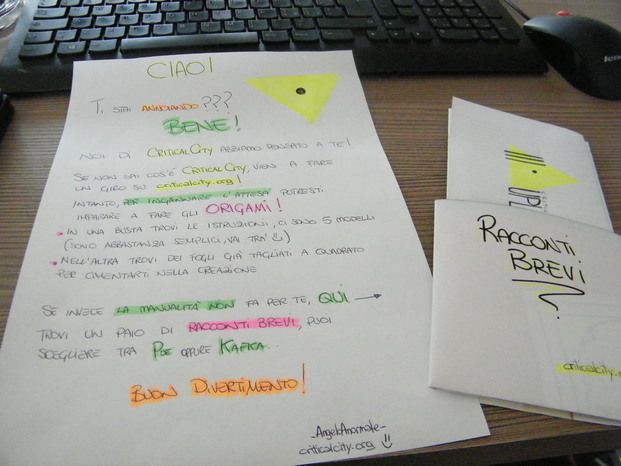 CIAO!
TI STAI ANNOIANDO???
BENE!
NOI DI CRITICALCITY ABBIAMO PENSATO A TE!
SE NON SAI COS'È CRITICALCITY, VIENI A FARE
UN GIRO SU criticalcity.org!
INTANTO, PER INGANNARE L'ATTESA POTRESTI
IMPARARE A FARE GLI ORIGAMI!
IN UNA BUSTA TROVI LE ISTRUZIONI, CI SONO 5 MODELLI
(SONO ABBASTANZA SEMPLICI, VAI TRA')
NELL'ALTRA TROVI DEI FOGLI GIÀ TAGLIATI A QUADRATO
PER CIMENTARTI NELLA CREAZIONE
SE INVECE LA MANUALITA' NON FA PER TE, QUI →
TROVI UN PAIO DI RACCONTI BREVI, PUOI
SCEGLIERE TRA POE OPPURE KAFKA...
BUON DIVERTIMENTO!
-AngelaAnormale-
criticalcity.org
RACCONTI
BREVI
criticalcity.